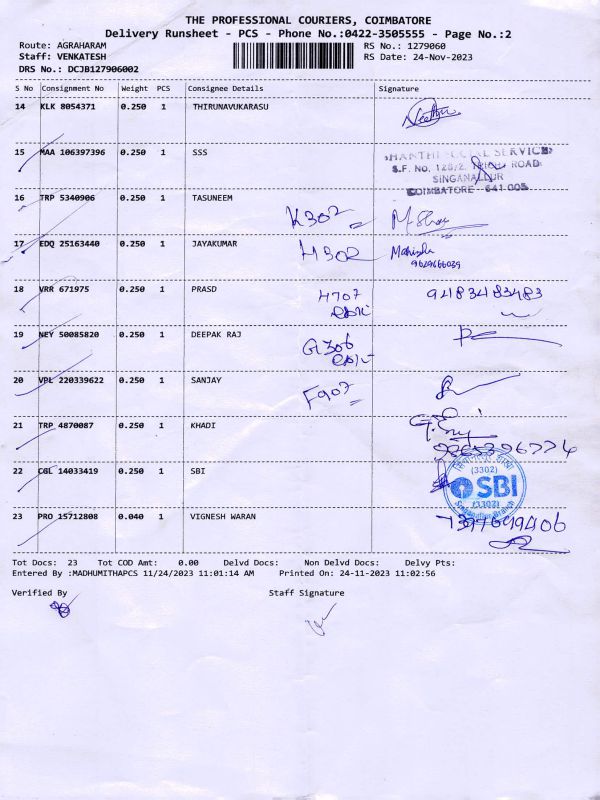 THE PROFESSIONAL COURIERS, COIMBATORE
Delivery Runsheet - PCS - Phone No.:0422-3505555 - Page No.:2
Route: AGRAHARAM RS No.: 1279060
Staff: VENKATESH RS Date: 24-Nov-2023
DRS No.: DCJB127906002
S No Consignment No Weight PCS Consignee Details Signature
14 KLK 8054371 0.250 1 THIRUNAVUKARASU
15 MAA 106397396 0.250 1 SSS
SOCIAL SERVICE
S.F. NO. 128/2, ROAD
SINGANALLUR
COIMBATORE - 641 005
16 TRP 5340906 0.250 1 TASUNEEM K302
17 EDQ 25163440 0.250 1 JAYAKUMAR H302
9629666039
18 VRR 671975 0.250 1 PRASD H707 9483483483
19 NEY 50085820 0.250 1 DEEPAK RAJ G306
20 VPL 220339622 0.250 1 SANJAY F907
21 TRP 4870087 0.250 1 KHADI
22 CGL 14033419 0.250 1 SBI
(3302)
SBI
(3302)
Singanallur Branch
23 PRO 15712808 0.040 1 VIGNESH WARAN
Tot Docs: 23 Tot COD Amt: 0.00 Delvd Docs: Non Delvd Docs: Delvy Pts:
Entered By :MADHUMITHAPCS 11/24/2023 11:01:14 AM Printed On: 24-11-2023 11:02:56
Verified By Staff Signature